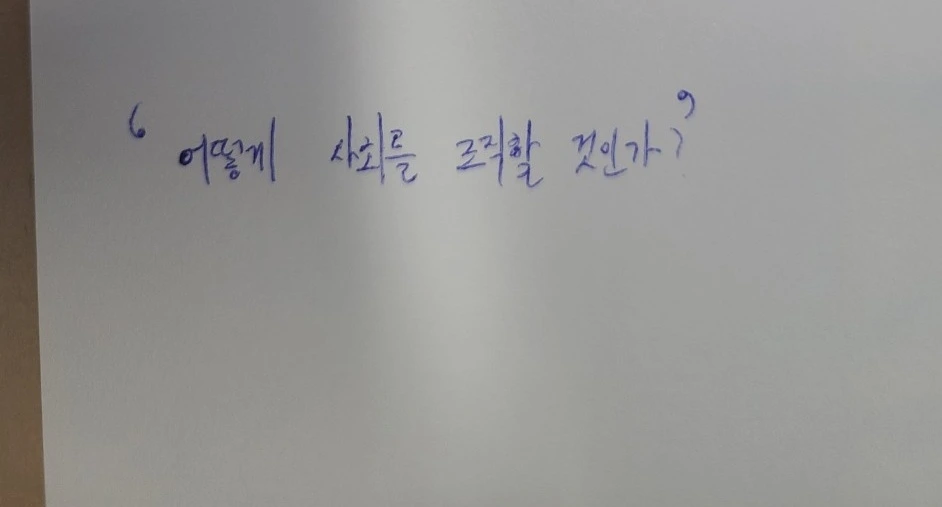 ‘어떻게 사회를 조직할 것인가?’